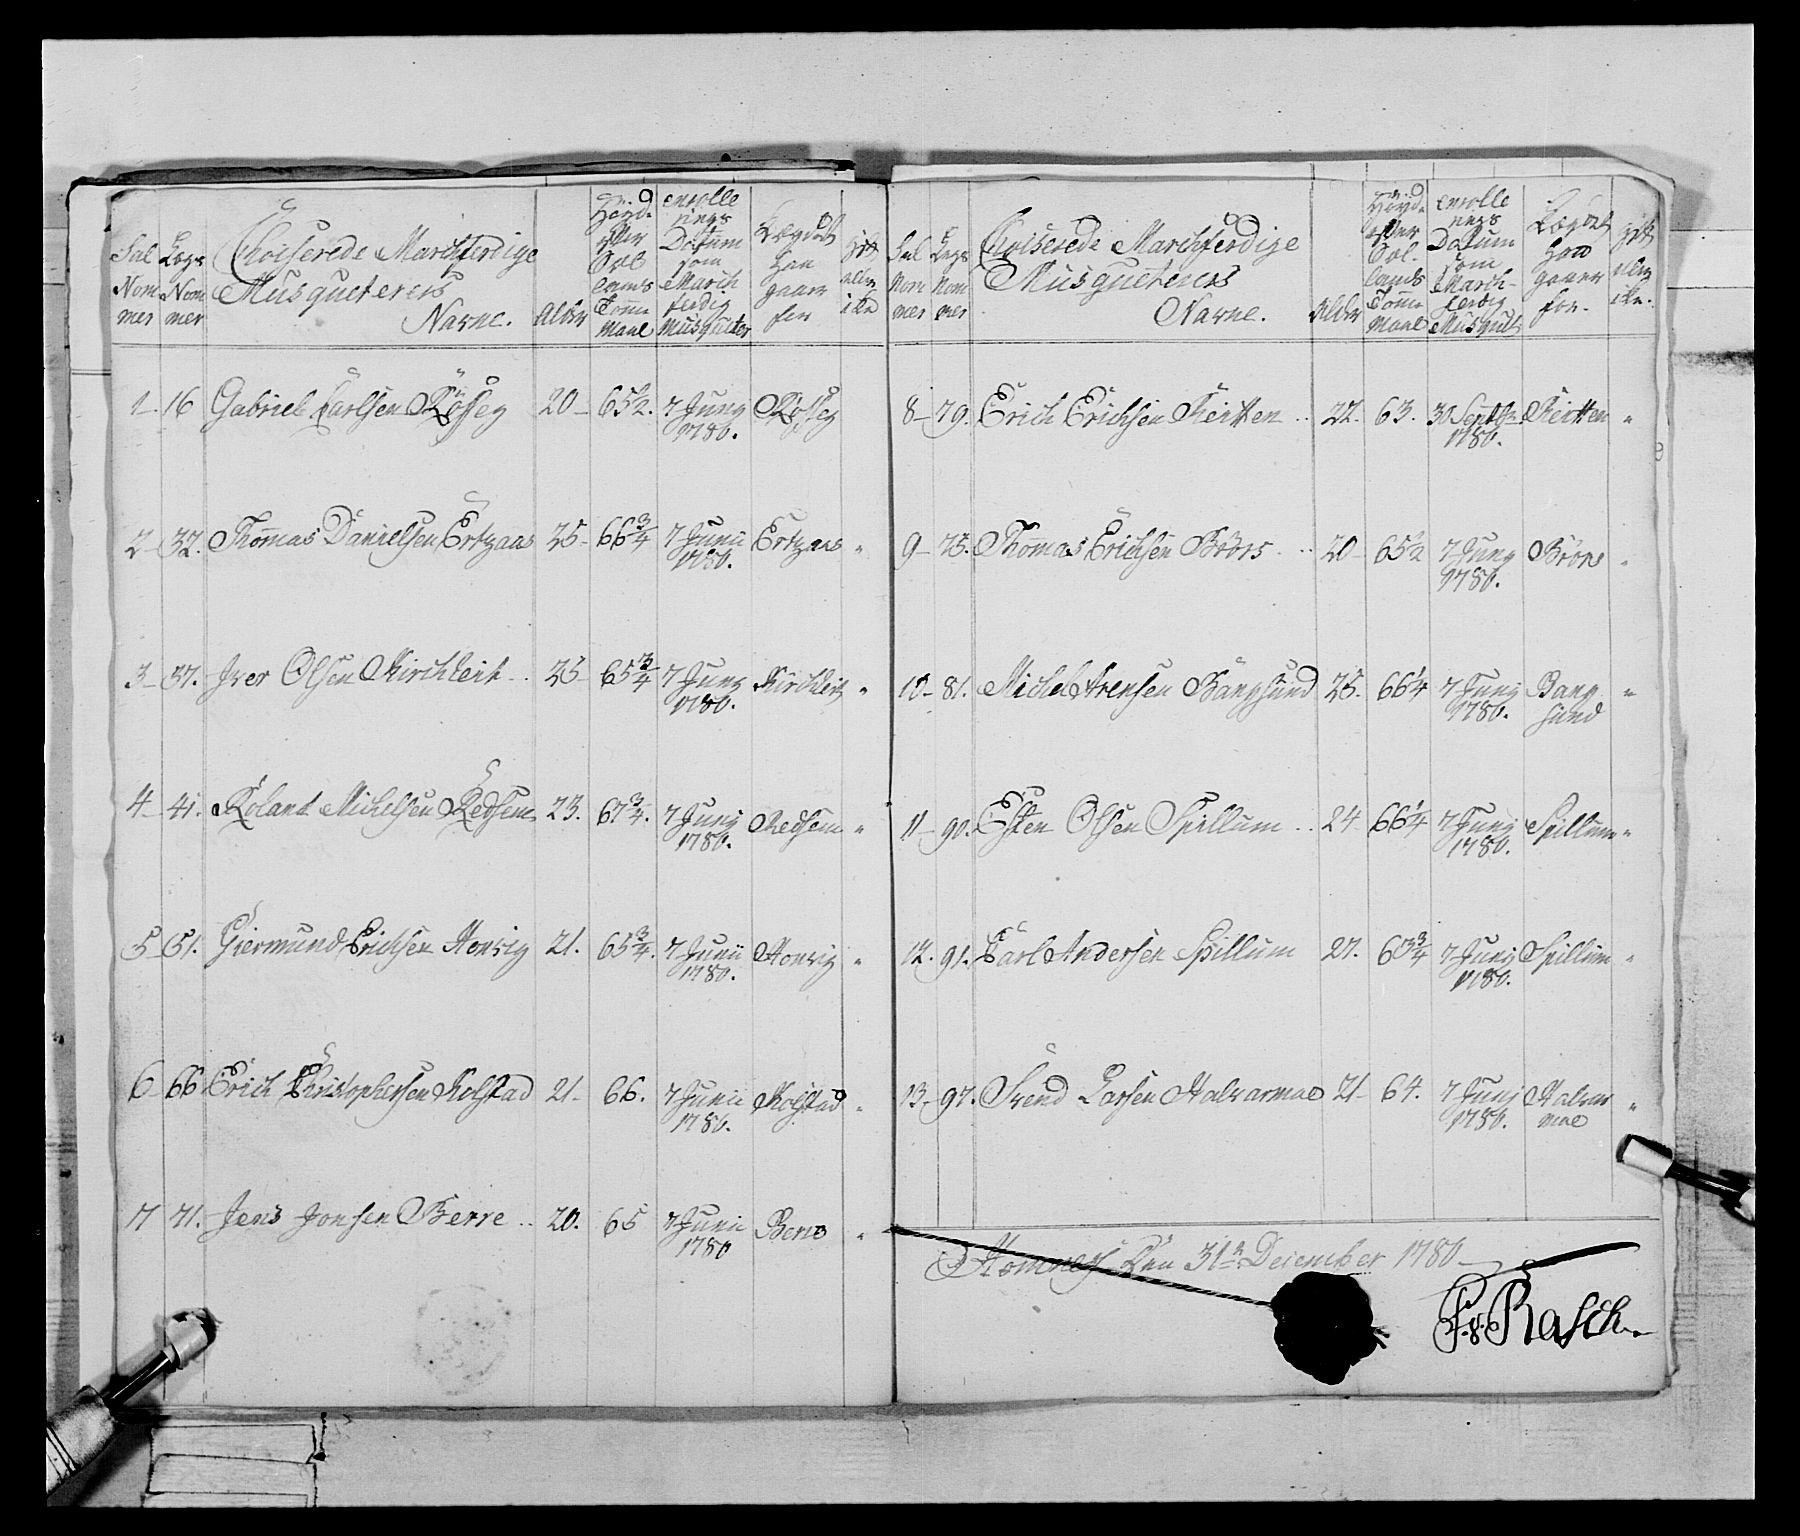 Sal Nommer | Legs Nommer | Choiserede Marchferdige Musqueterers Navne. | Alder | Høyde efter Sol lands Tomme Maal | enrolle rings Datum som March ferdig Musqueter | Lægdet han gaaer for | Gift eller ikke
1 – 16 Gabriel Carlsen Røsseg 20 – 65½. 7 Junÿ 1780. Røsseg
2 – 32. Thomas Danielsen Ertzaas 25 – 66¾ 7 Junii 1780. Ertzaas "
3 – 37. Iver Olsen Kirchleit .. 25 – 65¾ 7 Junÿ 1780. Kirchleit "
4 – 41. Roland Michelsen Redsem 23. 67¾. 7 Junÿ 1780. Redsem "
5 – 51. Giermund Erichsen Honvig 21. 65¾. 7 Junii 1780. Honvig "
6 – 66 Erich Christophersen Kolstad 21 – 66. 7 Junii 1780. Kolstad "
7 71. Jens Jonsen Berre .. 20. 65 7 Junii 1780 Berre "
Sal Nommer | Legs Nommer | Choiserede Marchferdige Musqueterers Navne. | Alder | Høyde efter Sol. lands Tomme Maal | enrolle rings Datum som March-ferdig Musquet | Lægdet han gaaer for. | Gift eller ikke.
8 – 79. Erich Erichsen Reitten .. 22. 63. 30 Septbr 1780. Reitten "
9 – 75. Thomas Erichsen Brörs .. 20 – 65½ 7 Junÿ 1780. Brörs "
10 – 81. Michel Arensen Bangsund 25. 66¼ 7 Junÿ 1780. Bang sund "
11 – 90. Esten Olsen Spillum .. 24 66¼ 7 Junÿ 1780. Spillum "
12. 91. Carl Andersen Spillum 27. 60¾ 7 Junÿ 1780. Spillum "
13 – 97. Svend Larsen Halvarmoe 21 – 64. 7 Junÿ 1780. Halvar moe "
Den 31te December 1780
Rasch